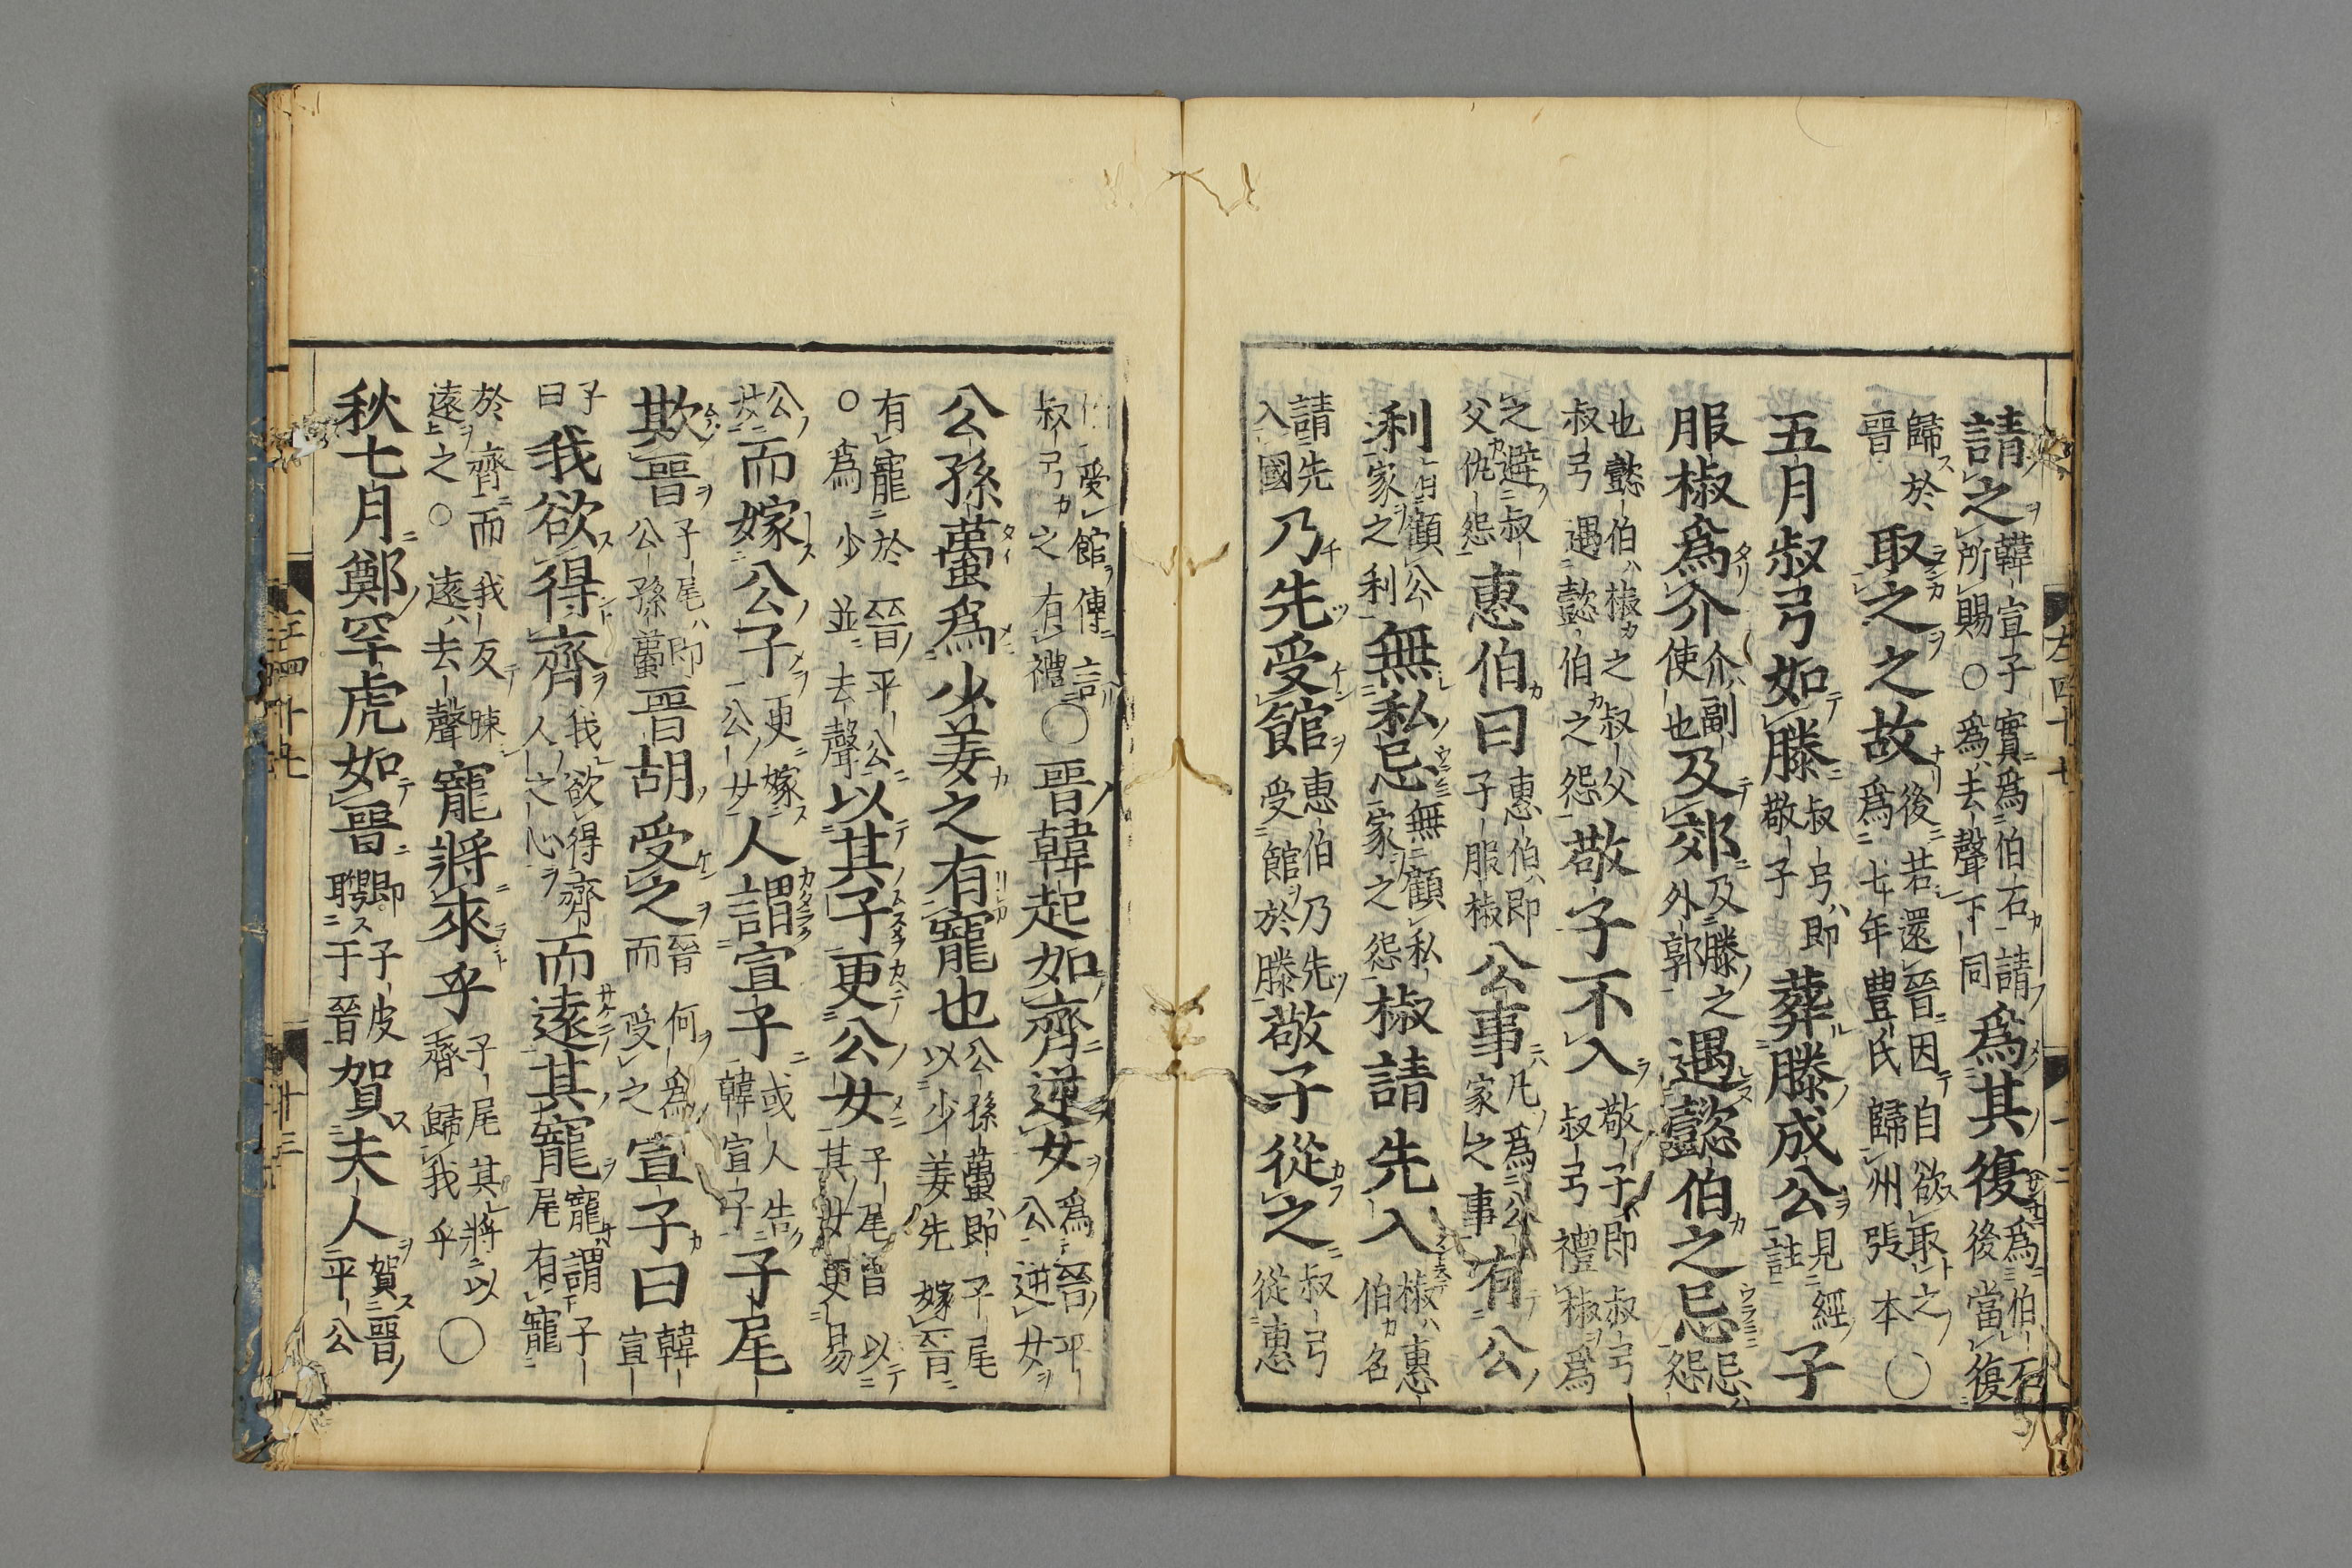 請之韓宣子實爲伯石請所賜○爲去聲下同爲其復爲伯石後當復
歸於晉取之之故後若還晉因自欲取之爲七年豐氏歸州張本○
五月叔弓如滕叔弓即敬子葬滕成公見經註子
服椒爲介介副使也及郊及滕之外郭遇懿伯之忌忌怨
也懿伯椒之叔父叔弓遇懿伯之怨敬子不入敬子即叔弓叔弓禮椒爲
之避叔父仇怨惠伯曰惠伯即子服椒公事凡爲公家之事有公
利有顧公家之利無私忌無顧私家之怨椒請先入椒惠伯名
請先入國乃先受館惠伯乃先受館於滕敬子從之叔弓從惠
受館傳言叔弓之有禮○晉韓起如齊逆女爲晉平公逆女
公孫蠆爲少姜之有寵也公孫蠆即子尾以少姜先嫁晉
有寵於晉平公○爲少並去聲以其子更公女子尾嘗以其女更易
公女而嫁公子更嫁公女人謂宣子或人告韓宣子子尾
欺晉子尾即公孫蠆晉胡受之晉何爲而受之宣子曰韓宣
子曰我欲得齊我欲得齊人之心而遠其寵寵謂子尾有寵
於齊而我反疎遠之○遠去聲寵將來乎子尾其將以齊歸我乎○
秋七月鄭罕虎如晉即子皮聘于晉賀夫人賀晉平公